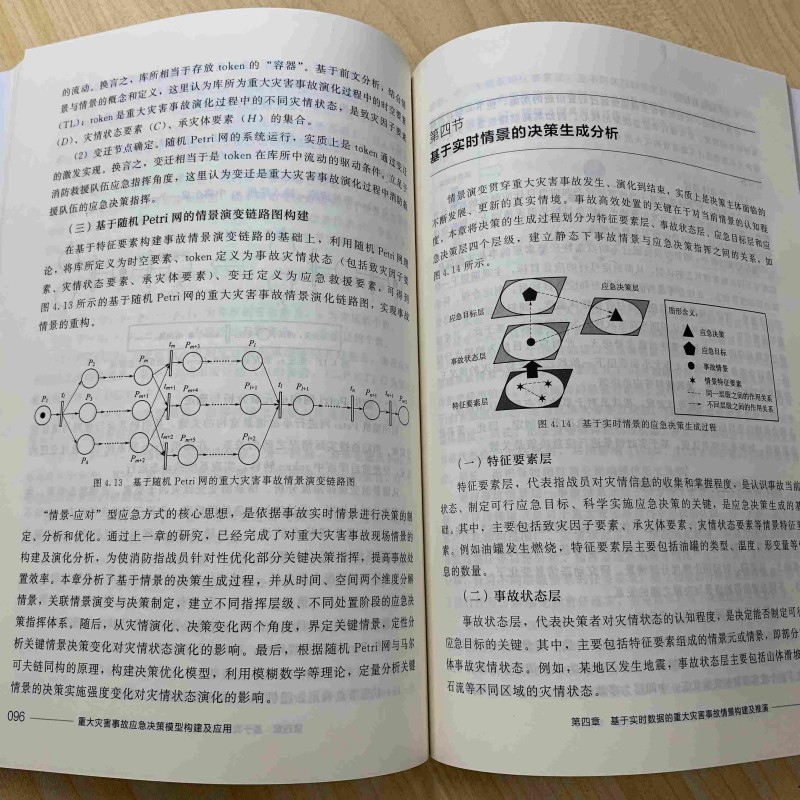 的流动。换言之，库所相当于存放 token 的“容器”。基于前文分析，结合情
景与情景的概念和定义，这里认为库所为重大灾害事故演化过程中的时空要素
(TL)；token 是重大灾害事故演化过程中的不同灾情状态，是致灾因子要素
(D)、灾情状态要素 (C)、承灾体要素 (H) 的集合。
(2) 变迁节点确定。随机 Petri 网的系统运行，实质上是 token 通过变迁
的激发实现。换言之，变迁相当于是 token 在库所中流动的驱动条件。立足于
消防救援队伍应急指挥角度，这里认为变迁是重大灾害事故演化过程中消防救
援队伍的应急决策指挥。
（三）基于随机 Petri 网的情景演变链路图构建
在基于特征要素构建事故情景演变链路的基础上，利用随机 Petri 网理
论，将库所定义为时空要素、token 定义为事故灾情状态（包括致灾因子要
素、灾情状态要素、承灾体要素）、变迁定义为应急救援要素，可得到
图 4.13 所示的基于随机 Petri 网的重大灾害事故情景演化链路图，实现事故
情景的重构。
P1 t1 P2 P3 P4 Pm Pm+1 Pm+2 tm tm+1 tm+2 Pm+3 Pm+4 Pm+5 Pl Pl+1 Pl+2 tl Pl+1 tn Pn+1
图 4.13 基于随机 Petri 网的重大灾害事故情景演变链路图
“情景-应对”型应急方式的核心思想，是依据事故实时情景进行决策的制
定、分析和优化。通过上一章的研究，已经完成了对重大灾害事故现场情景的
构建及演化分析，为使消防指战员针对性优化部分关键决策指挥，提高事故处
置效率。本章分析了基于情景的决策生成过程，并从时间、空间两个维度分解
情景，关联情景演变与决策制定，建立不同指挥层级、不同处置阶段的应急决
策指挥体系。随后，从灾情演化、决策变化两个角度，界定关键情景，定性分
析关键情景决策变化对灾情状态演化的影响。最后，根据随机 Petri 网与马尔
可夫链同构的原理，构建决策优化模型，利用模糊数学等理论，定量分析关键
情景的决策实施强度变化对灾情状态演化的影响。
096 重大灾害事故应急决策模型构建及应用
第四节
基于实时情景的决策生成分析
情景演变贯穿重大灾害事故发生、演化到结束，实质上是决策主体面临的
不断发展、更新的真实情境。事故高效处置的关键在于对当前情景的认知程
度，本章将决策的生成过程划分为特征要素层、事故状态层、应急目标层和应
急决策层四个层级，建立静态下事故情景与应急决策指挥之间的关系，如
图 4.14 所示。
应急目标层
应急决策层
事故状态层
特征要素层
图形含义：
应急决策
应急目标
事故情景
情景特征要素
同一层级之间的作用关系
不同层级之间的作用关系
图 4.14 基于实时情景的应急决策生成过程
（一）特征要素层
特征要素层，代表指战员对灾情信息的收集和掌握程度，是认识事故当前
状态、制定可行应急目标、科学实施应急决策的关键，是应急决策生成的基
础。其中，主要包括致灾因子要素、承灾体要素、灾情状态要素等情景特征要
素。例如油罐发生燃烧，特征要素层主要包括油罐的类型、温度、形变量等信
息的数量。
（二）事故状态层
事故状态层，代表决策者对灾情状态的认知程度，是决定能否制定可行
应急目标的关键。其中，主要包括特征要素组成的情景元或情景，即部分
体事故灾情状态。例如，某地区发生地震，事故状态层主要包括山体滑坡
石流等不同区域的灾情状态。
第四章 基于实时数据的重大灾害事故情景构建及推演